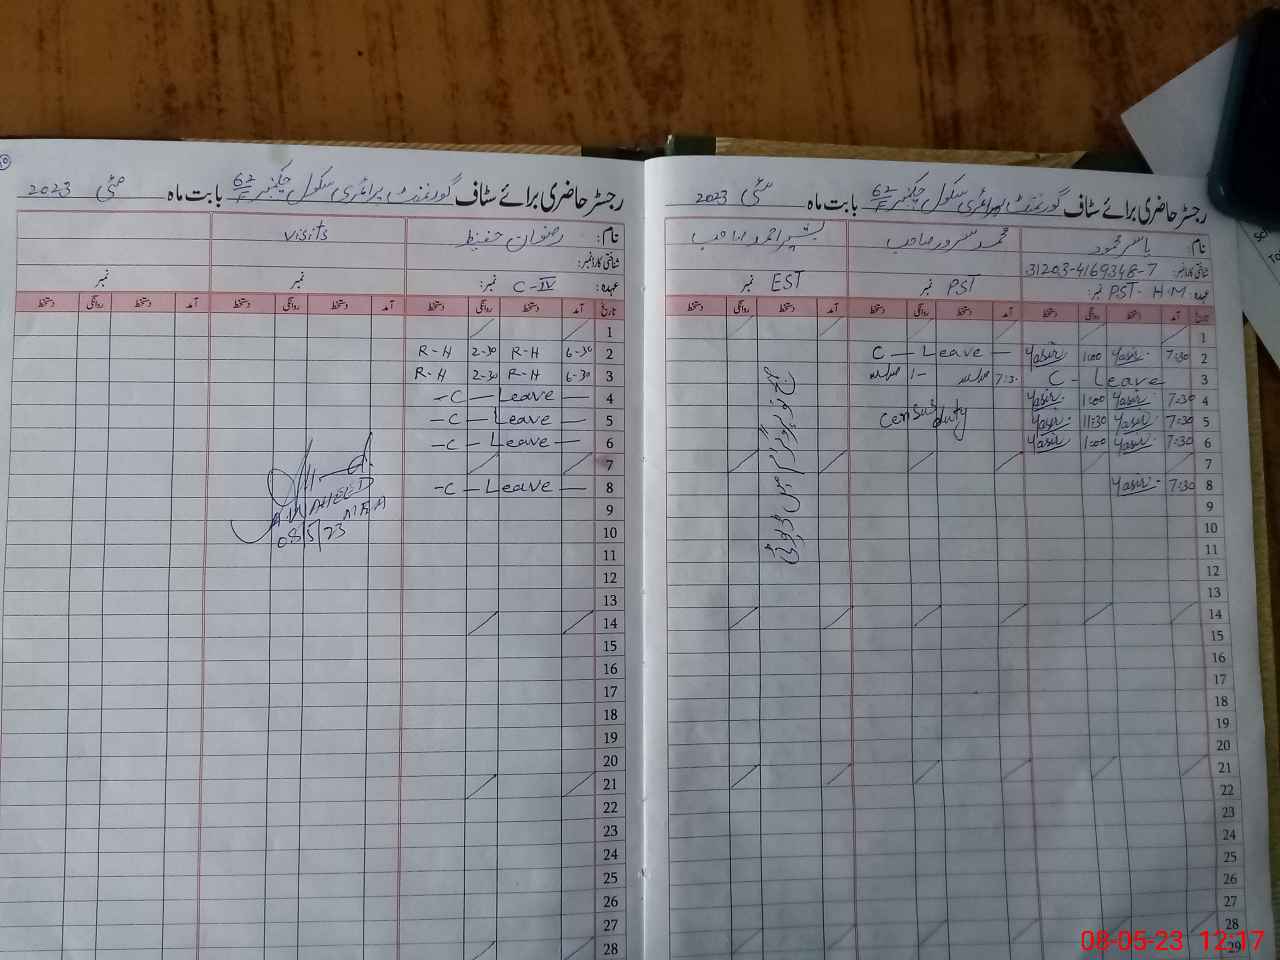 رجسٹر حاضری برائے سٹاف گورنمنٹ پرائمری سکول چکنمبر 62/F بابت ماہ مئی 2023
نام: یاسر محمود
شناختی کارڈ نمبر: 31203-4169348-7
عہدہ: PST - H.M نمبر:
محمد سرور صاحب
PST نمبر
بشیر احمد صاحب
EST نمبر
تاریخ آمد دستخط روانگی دستخط آمد دستخط روانگی دستخط آمد دستخط روانگی دستخط
1
2 7:30 Yasir 1:00 Yasir C - Leave -
3 C - Leave 7:30 1-
4 7:30 Yasir 1:00 Yasir
5 7:30 Yasir 11:30 Yasir census duty
6 7:30 Yasir 1:00 Yasir
7
8 7:30 Yasir
9
10
11
12
13
14
15
16
17
18
19
20
21
22
23
24
25
26
27
28
29
رجسٹر حاضری برائے سٹاف گورنمنٹ پرائمری سکول چکنمبر 62/F بابت ماہ مئی 2023
نام: رضوان حفیظ
شناختی کارڈ نمبر:
عہدہ: C-IV نمبر:
visits
نمبر
نمبر
تاریخ آمد دستخط روانگی دستخط آمد دستخط روانگی دستخط آمد دستخط روانگی دستخط
1
2 6-30 R-H 2-30 R-H
3 6-30 R-H 2-30 R-H
4 - C - Leave -
5 - C - Leave -
6 - C - Leave -
7
8 - C - Leave -
9
10
11
12
13
14
15
16
17
18
19
20
21
22
23
24
25
26
27
28
MEA
08/5/23
08-05-23 12:17